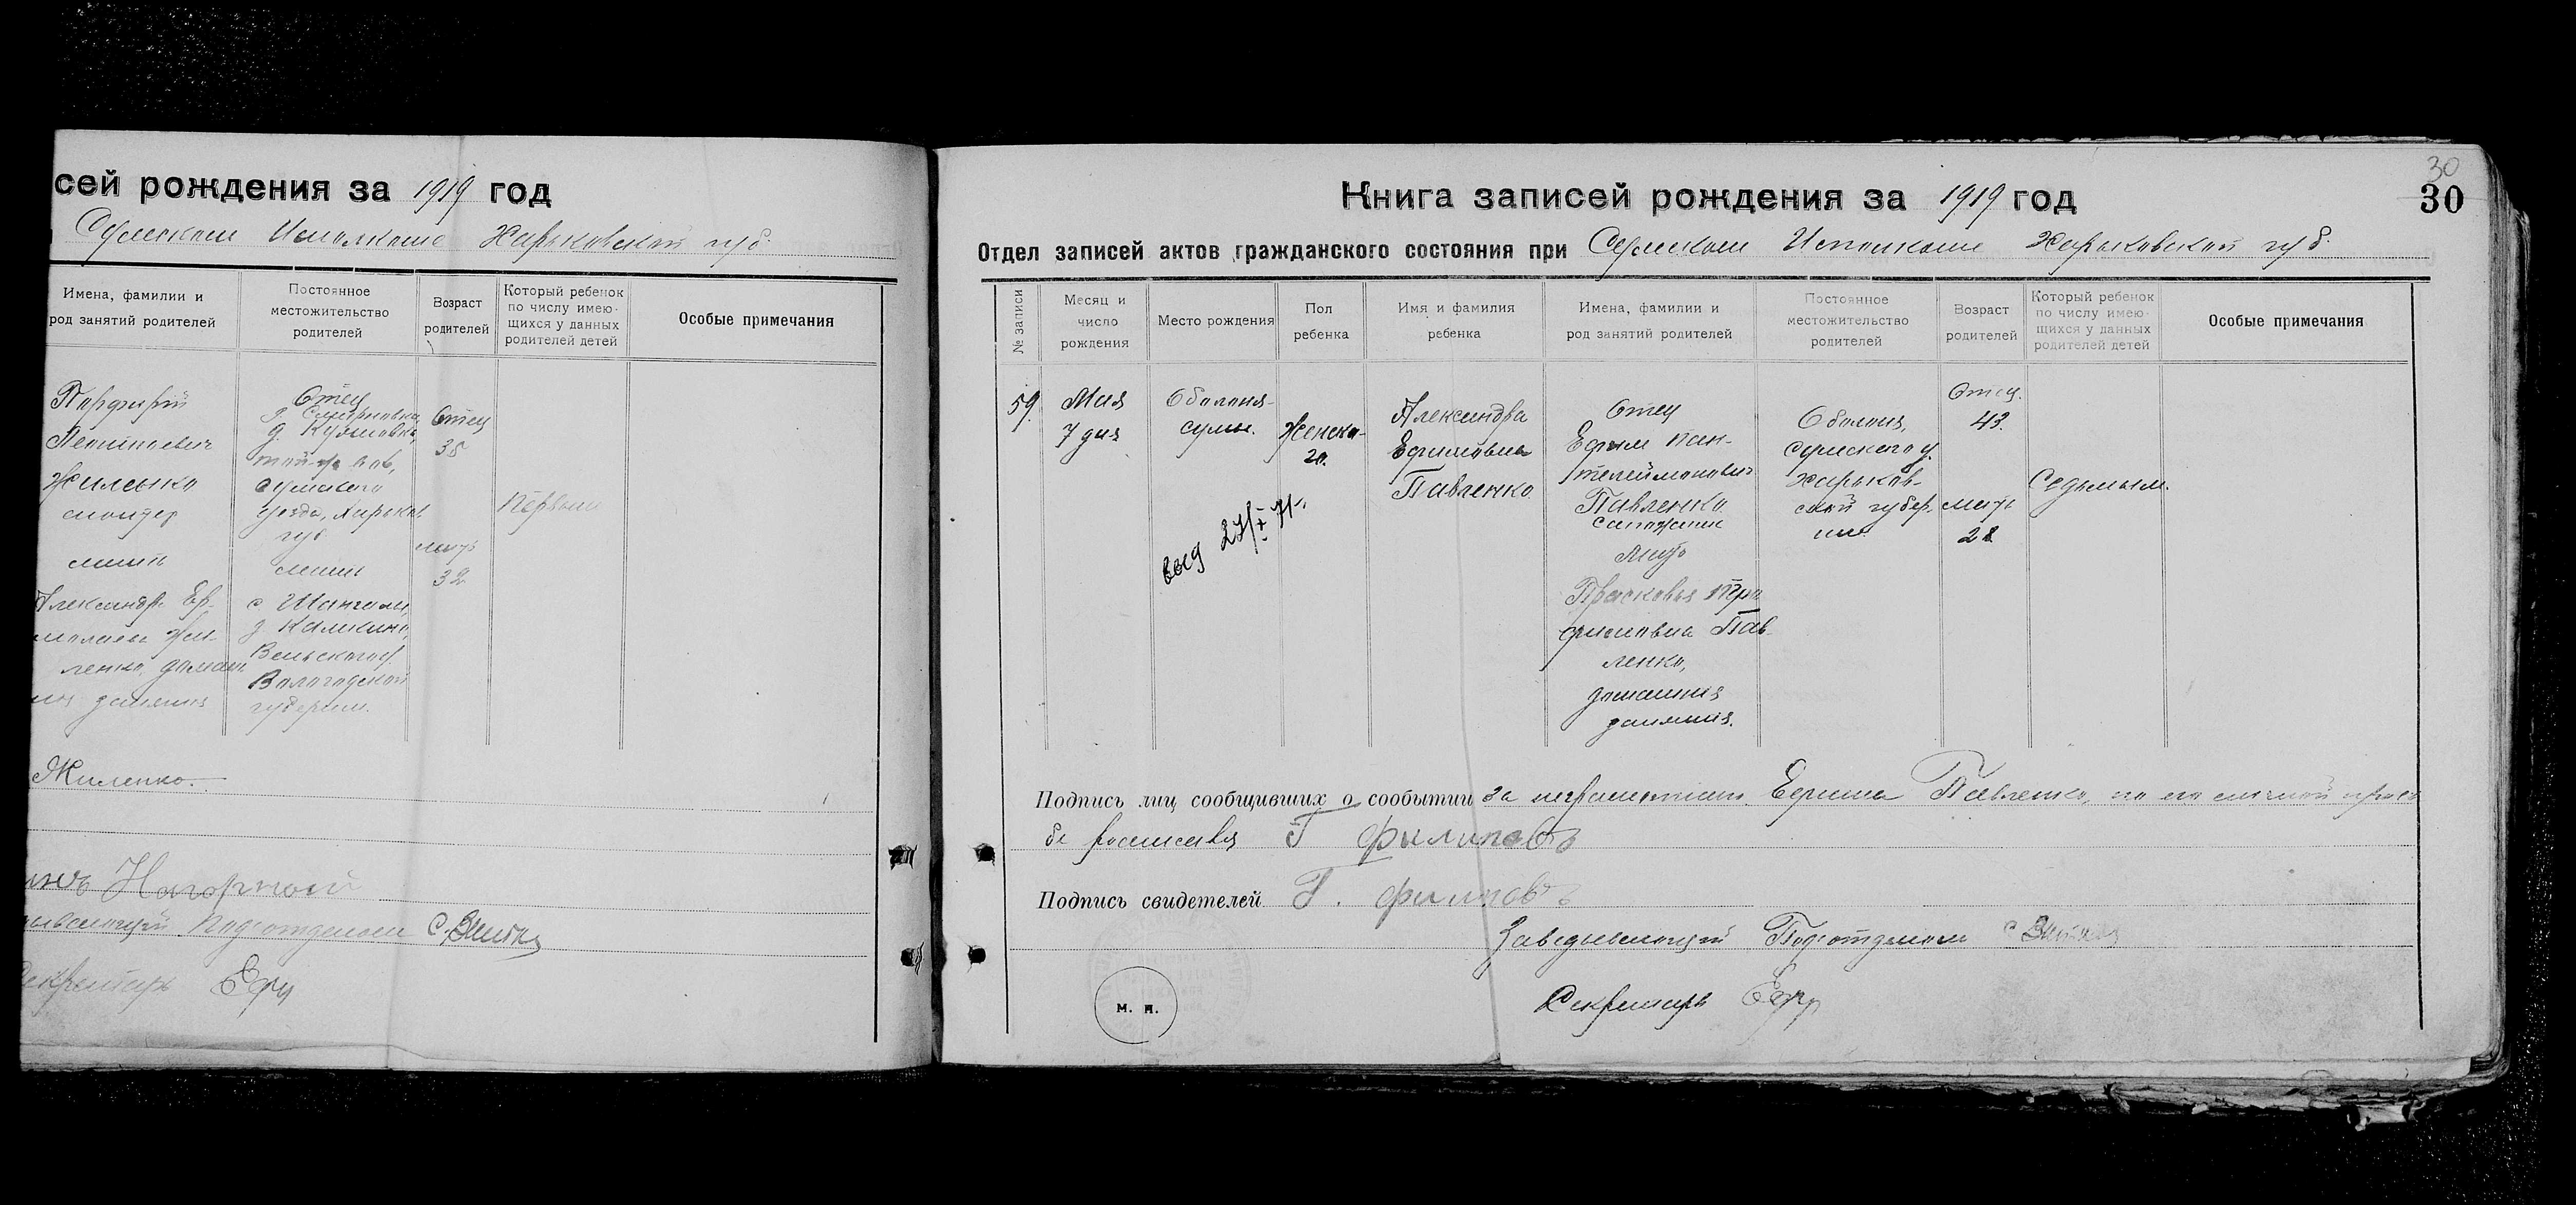 сей рождения за 1919 год
Сумском Исполкоме Харьковской губ.
Имена, фамилии и
род занятий родителей
Постоянное
местожительство
родителей
Возраст
родителей
Который ребенок
по числу имею-
щихся у данных
родителей детей
Особые примечания
Порфирий
Жиленко
Отец
Сумского
уезда, Харьков.
губ
мать
с. Шангалы
Вельского у.
Вологодской
губернии.
Отец
35
мать
32
Первый
Александра Ер-
молаевна Жи-
ленко, домаш
ния занятия
Жиленко.
Нагорный
Подотделом
Секретарь
30
Книга записей рождения за 1919 год
30
Отдел записей актов гражданского состояния при Сумском Исполкоме Харьковской губ.
№ записи
Месяц и
число
рождения
Место рождения
Пол
ребенка
Имя и фамилия
ребенка
Имена, фамилии и
род занятий родителей
Постоянное
местожительство
родителей
Возраст
родителей
Который ребенок
по числу имею-
щихся у данных
родителей детей
Особые примечания
59.
Мая
7 дня
Оболонь-
Сумы.
Женско-
го.
Александра
Ефимовна
Павленко
Отец
Ефим Пан-
телеймонович
Павленко
сапожник
Мать
Прасковья Тро
фимовна Пав-
ленко,
домашния
занятия.
Оболонь,
Сумского у.
Харьков-
ской губер.
нии.
Отец.
43.
мать
28
Седьмым.
выд 27/X 71.
Подпись лиц сообщивших о сообытии за неграмотнаго Ефима Павленко, по его личной прось
бе росписався Г Филипов
Подпись свидетелей Г. Филипов
Заведывающий Подотделом
Секретарь
м. п.